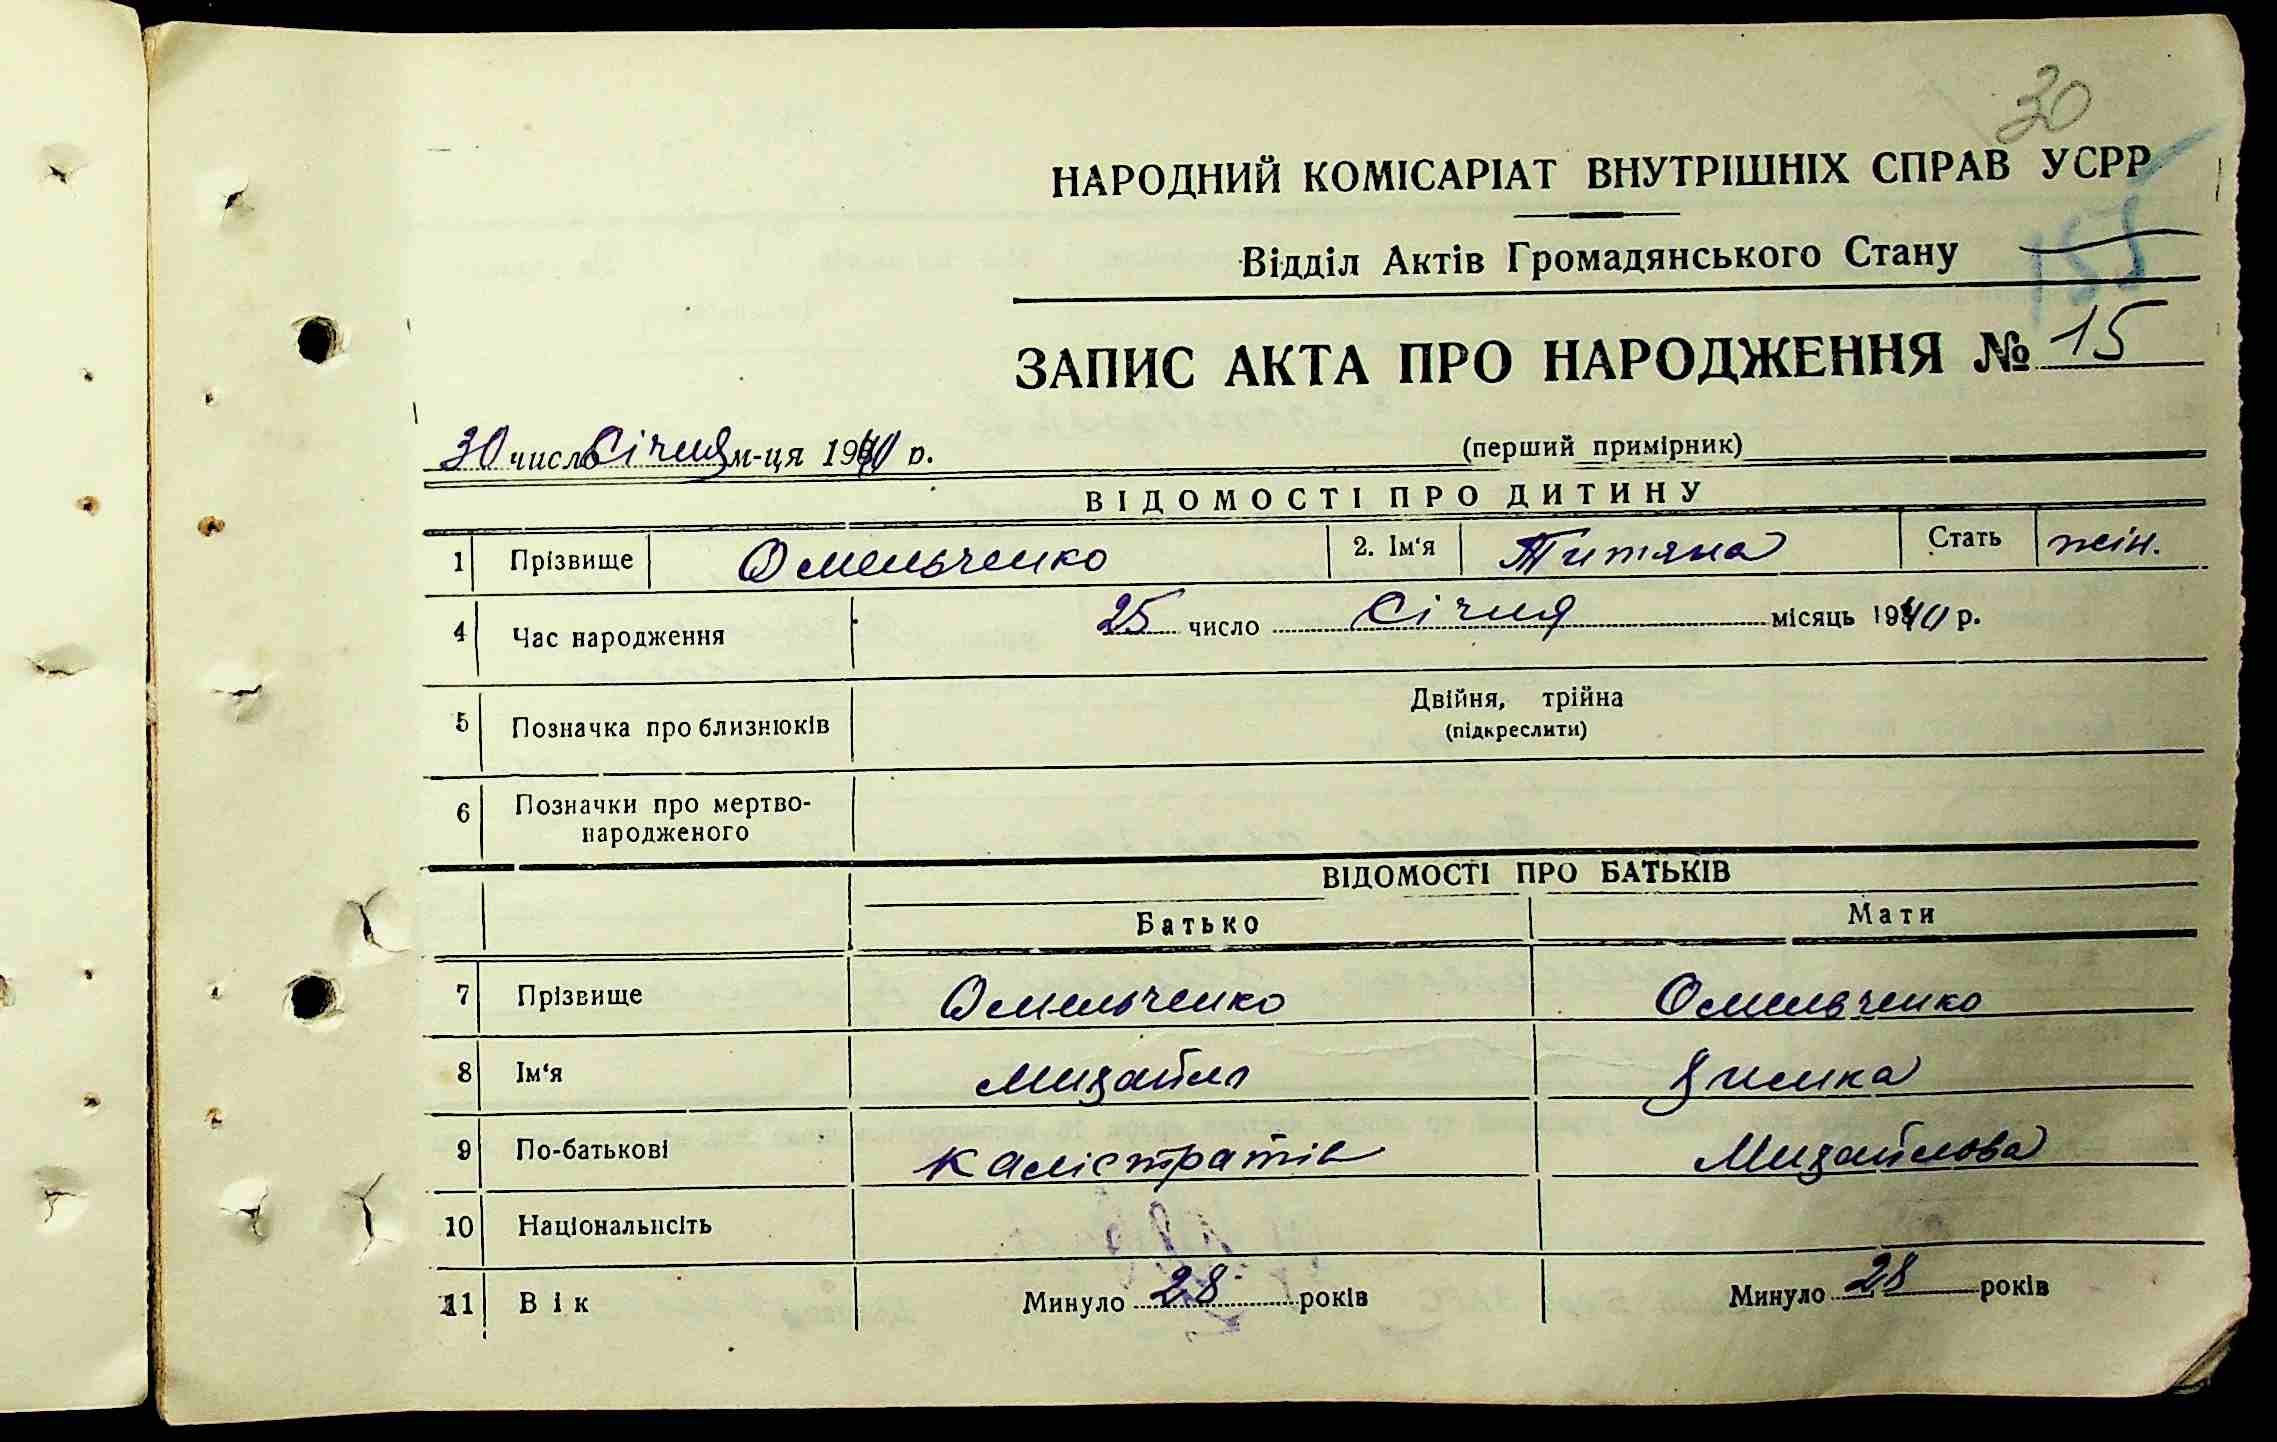 30
НАРОДНИЙ КОМІСАРІАТ ВНУТРІШНІХ СПРАВ УСРР
155
Відділ Актів Громадянського Стану
ЗАПИС АКТА ПРО НАРОДЖЕННЯ № 15
30 число Січня м-ця 1940 р.
(перший примірник)
ВІДОМОСТІ ПРО ДИТИНУ
1 Прізвище Омельченко 2. Ім'я Титяна Стать жін.
4 Час народження 25 число Січня місяць 1940 р.
5 Позначка про близнюків Двійня, трійна
(підкреслити)
6 Позначки про мертво-
народженого
ВІДОМОСТІ ПРО БАТЬКІВ
Батько Мати
7 Прізвище Омельченко Омельченко
8 Ім'я Михайло
9 По-батькові Калістратів Михайлова
10 Національнсіть
11 Вік Минуло 28 років Минуло 28 років